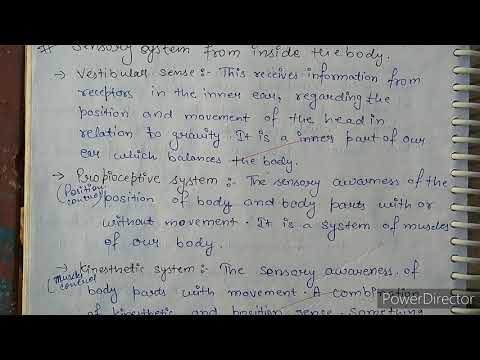 # Sensory system from inside the body.
→ Vestibular sense :- This receives information from
receptors in the inner ear, regarding the
position and movement of the head in
relation to gravity. It is a inner part of our
ear which balances the body.
→ Propioceptive system :- The sensory awarness of the
(Position control) position of body and body parts with or
without movement. It is a system of muscles
of our body.
→ Kinesthetic system :- The sensory awareness of
(Muscle control) body parts with movement. A combination
of kinesthetic and position sense. Something
PowerDirector